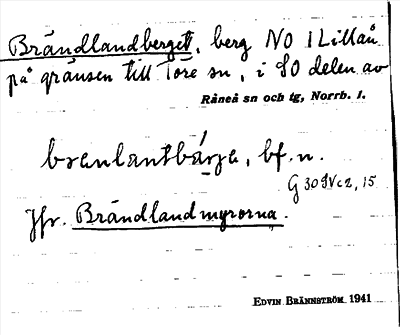 Brändlandberget, berg NO i Lillån
på gränsen till Töre sn, i SO delen av
Råneå sn och tg, Norrb. l.
branlantbárja, bf. n.
G 30 IV c 2, 15
Jfr. Brändlandmyrorna.
EDVIN BRÄNNSTRÖM 1941